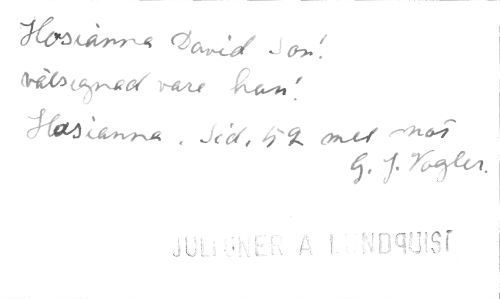 Hosianna David Son!
välsignad vare han!
Hosianna. Sid. 52 med not
G. J. Vogler.
A LUNDQUIST